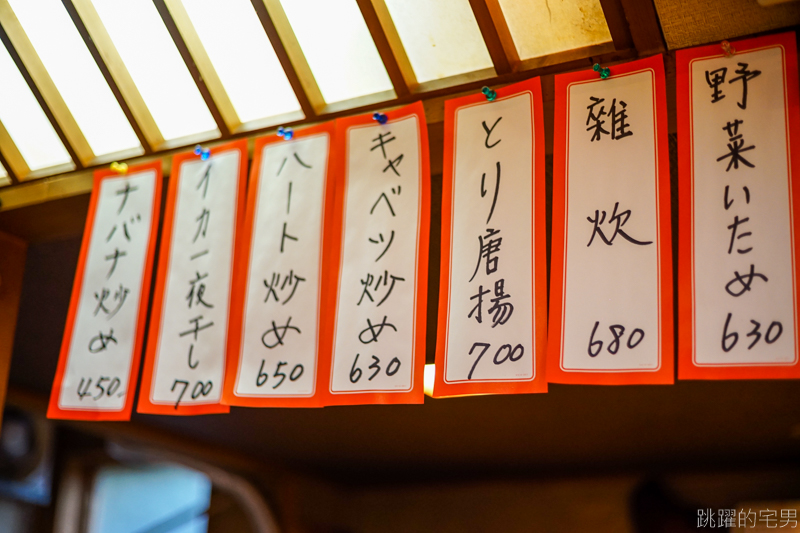 野菜いため
630
雑炊
680
とり唐揚
700
キャベツ炒め
630
ハート炒め
650
イカ一夜干し
700
ナバナ炒め
450-
跳躍的宅男